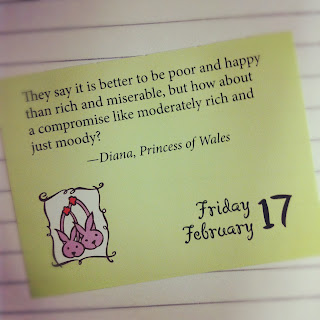 They say it is better to be poor and happy
than rich and miserable, but how about
a compromise like moderately rich and
just moody?
—Diana, Princess of Wales
Friday
February 17